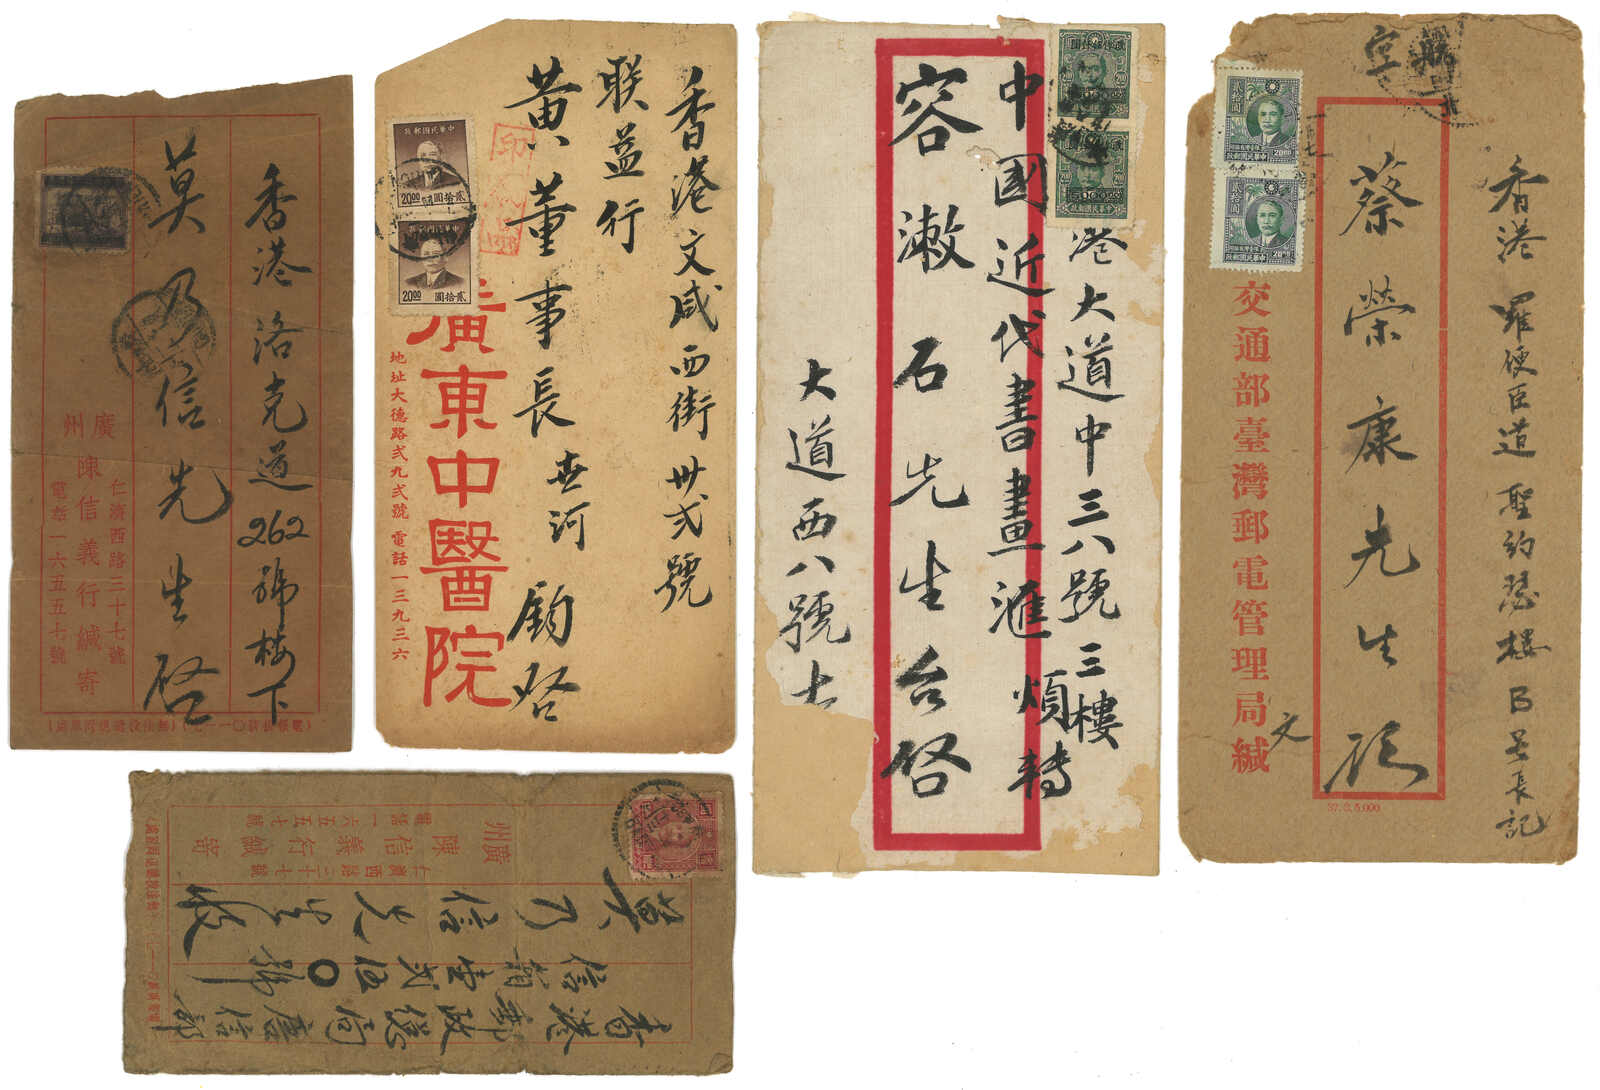 香港洛克道262號樓下
莫乃信先生啓
廣州
仁濟西路三十七號
陳信義行緘寄
電話一六五五七號
香港文咸西街卅弍號
聯益行
黃董事長世河鈞啓
印刷品
中華民國郵政
20.00
貳拾圓
20.00
貳拾圓
廣東中醫院
地址大德路弍九弍號電話一三九三六
港大道中三八號三樓
中國近代書畫滙煩轉
容漱石先生台啓
大道西八號
5000.00
航空
香港羅便臣道聖約瑟樓B
蔡榮康先生
貳拾圓
20.00
中華民國郵政
貳拾圓
20.00
中華民國郵政
交通部臺灣郵電管理局緘
文
37.3.5,000
廣州
仁濟西路三十七號
陳信義行緘寄
電話一六五五七號
莫乃信先生收
信箱壹弍伍〇號
香港郵政總局